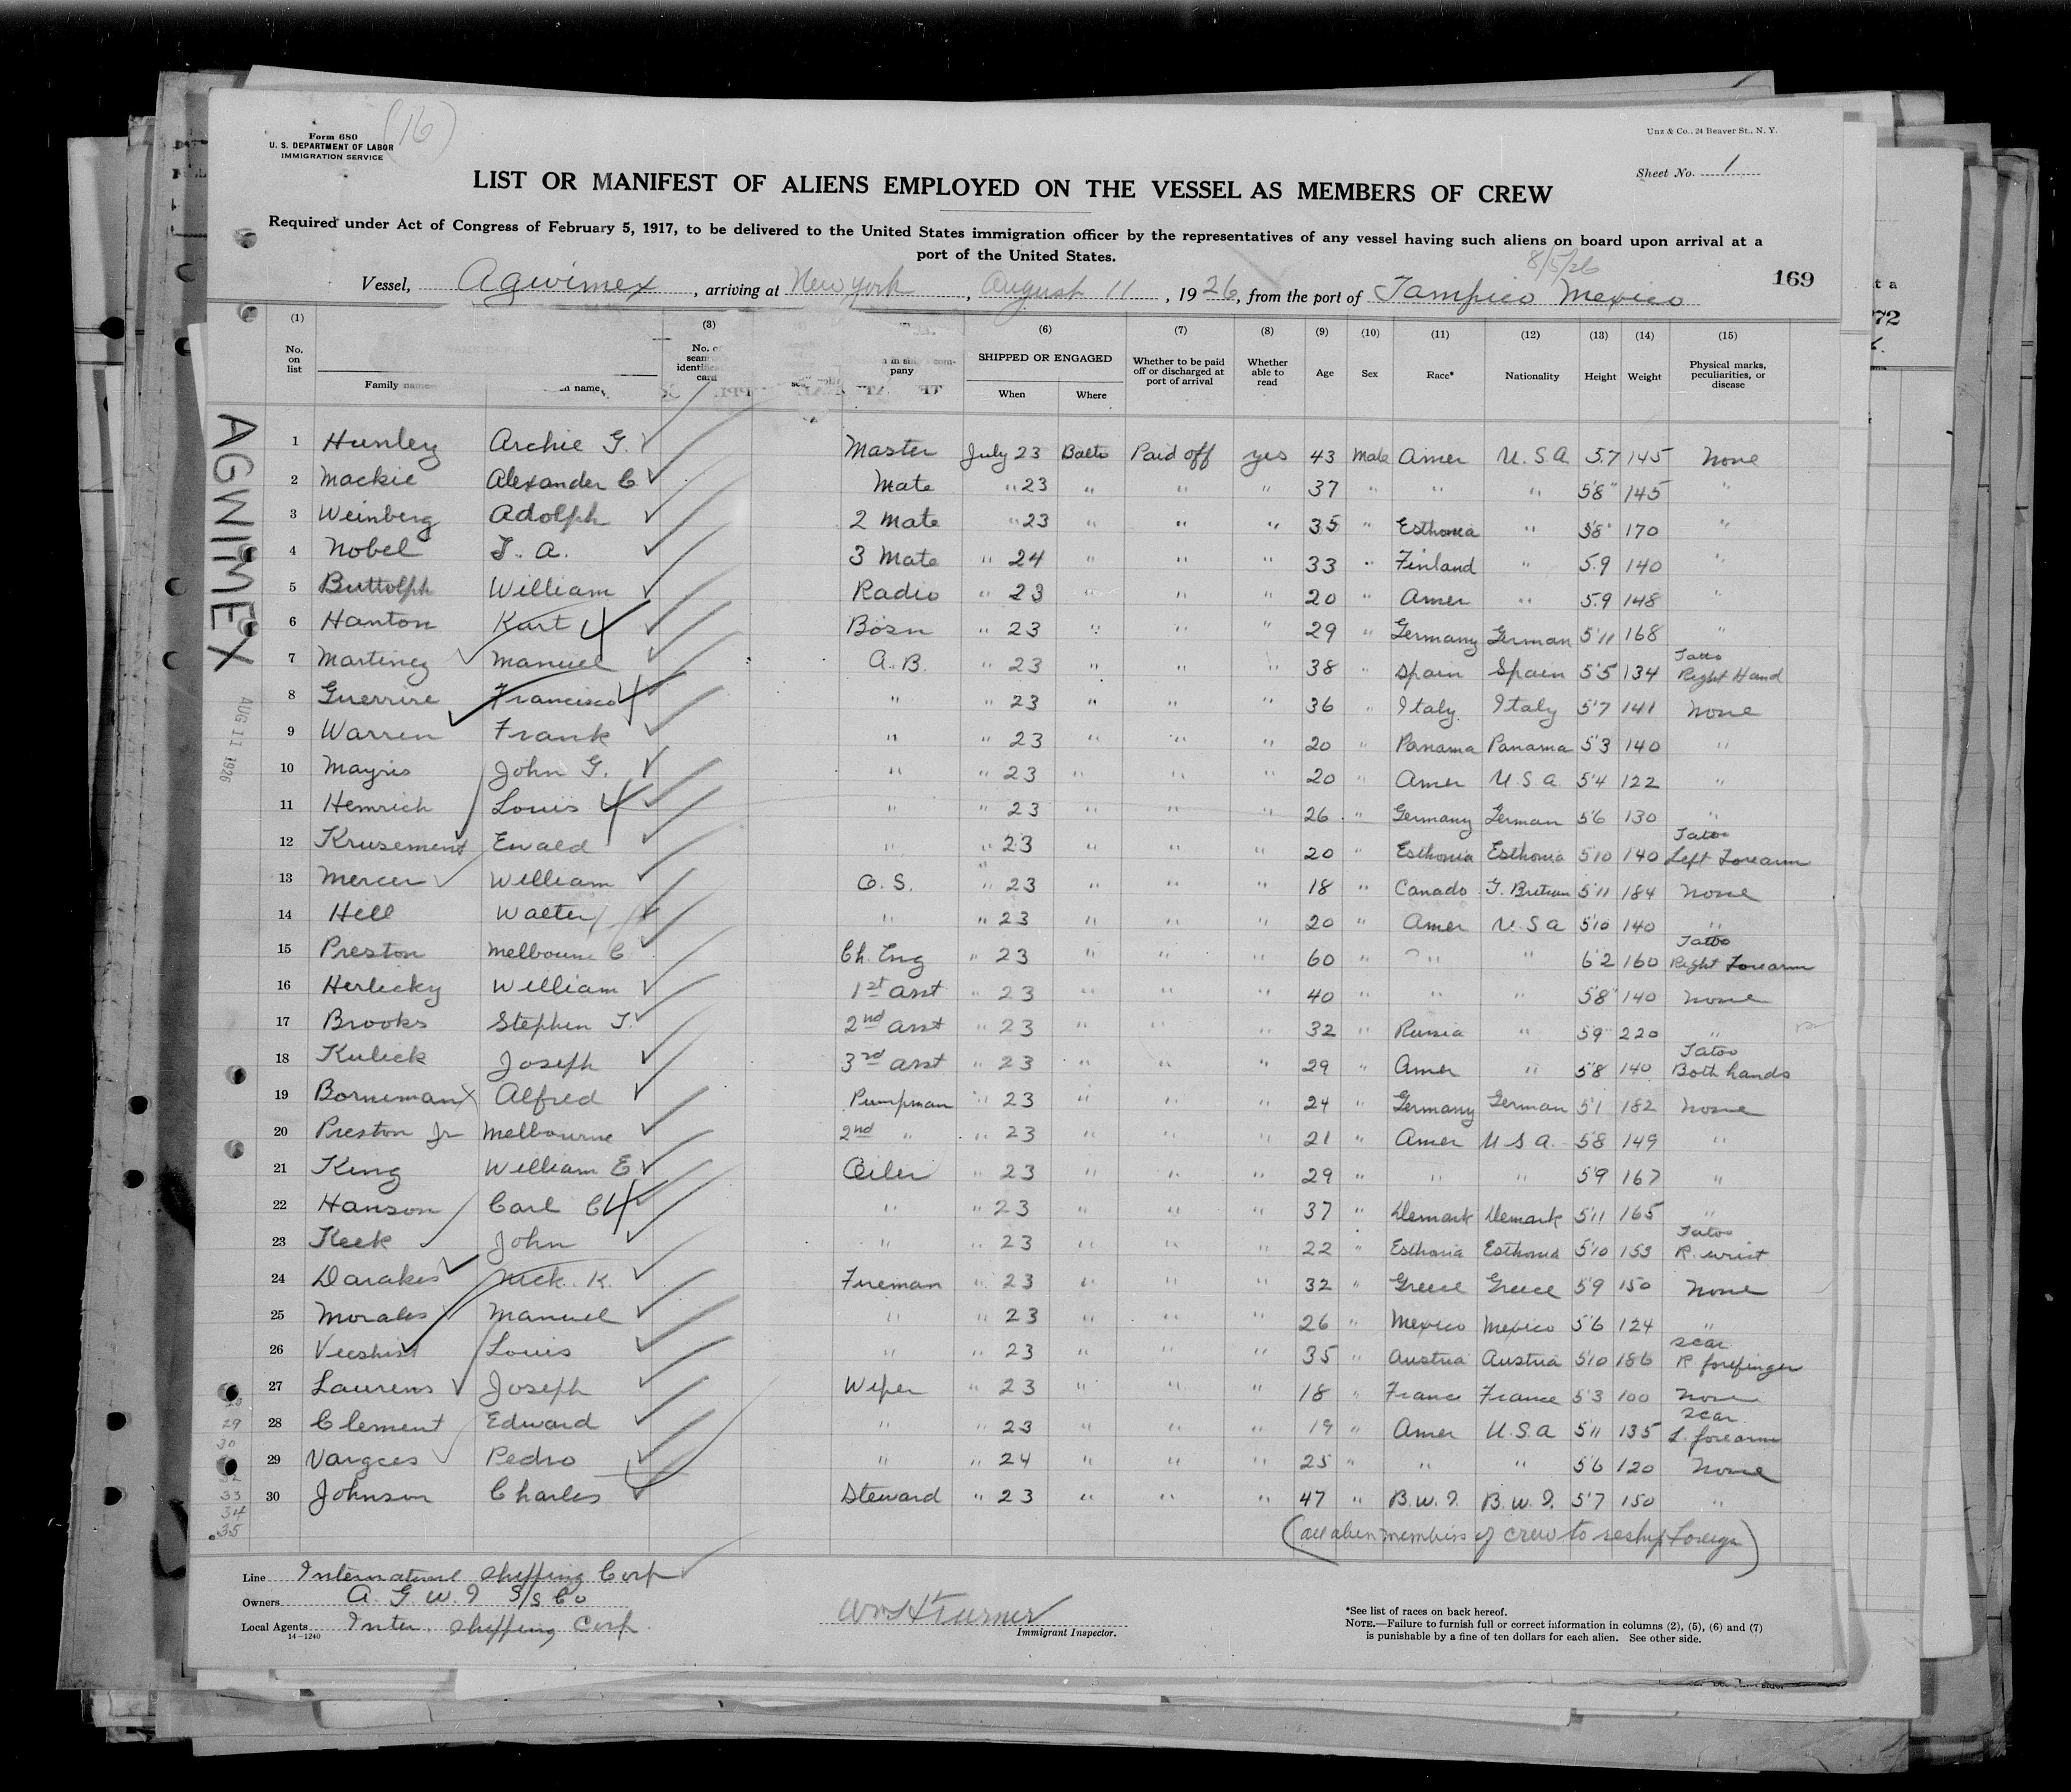 (16)
Form 680
U. S. DEPARTMENT OF LABOR
IMMIGRATION SERVICE
Uns & Co., 24 Beaver St., N. Y.
Sheet No. 1
LIST OR MANIFEST OF ALIENS EMPLOYED ON THE VESSEL AS MEMBERS OF CREW
Required under Act of Congress of February 5, 1917, to be delivered to the United States immigration officer by the representatives of any vessel having such aliens on board upon arrival at a
port of the United States.
8/5/26
169
Vessel, Agwimex, arriving at New York, August 11, 1926, from the port of Tampico Mexico
(1) (3) (6) (7) (8) (9) (10) (11) (12) (13) (14) (15)
No. on list Family name name, card pany SHIPPED OR ENGAGED When Where Whether to be paid off or discharged at port of arrival Whether able to read Age Sex Race* Nationality Height Weight Physical marks, peculiarities, or disease
AGWIMEX
AUG 11 1926
1 Hunley Archie G. Master July 23 Balto Paid off yes 43 Male Amer U.S.A 5.7 145 None
2 Mackie Alexander C Mate " 23 " " " 37 " " " 5'8" 145 "
3 Weinberg Adolph 2 Mate " 23 " " " 35 " Esthonia " 5'8" 170 "
4 Nobel J. A. 3 Mate " 24 " " " 33 " Finland " 5.9 140 "
5 Buttolph William Radio " 23 " " " 20 " Amer " 5.9 148 "
6 Hanton Kurt Bosn " 23 " " " 29 " Germany German 5'11 168 "
7 Martinez Manuel A.B. " 23 " " " 38 " Spain Spain 5'5 134 Tatto Right Hand
8 Guerrire Francisco " " 23 " " " 36 " Italy Italy 5'7 141 None
9 Warren Frank " " 23 " " " 20 " Panama Panama 5'3 140 "
10 Mayris John G. " " 23 " " " 20 " Amer U.S.A. 5'4 122 "
11 Hemrich Louis " " 23 " " " 26 " Germany German 5'6 130 "
12 Krusement Ewald " " 23 " " " 20 " Esthonia Esthonia 5'10 140 Tatoo Left Forearm
13 Mercer William O.S. " 23 " " " 18 " Canada G. Britian 5'11 184 None
14 Hill Walter " " 23 " " " 20 " Amer U.S.A 5'10 140 "
15 Preston Melbourne C Ch. Eng " 23 " " " 60 " " " 6'2 160 Tatoo Right Forearm
16 Herlicky William 1st Asst " 23 " " " 40 " " " 5'8" 140 None
17 Brooks Stephen J. 2nd Asst " 23 " " " 32 " Russia " 5'9" 220 "
18 Kulick Joseph 3rd Asst " 23 " " " 29 " Amer " 5'8 140 Tatoo Both hands
19 Borneman Alfred Pumpman " 23 " " " 24 " Germany German 5'1 182 None
20 Preston Jr Melbourne 2nd " " 23 " " " 21 " Amer U.S.A. 5'8 149 "
21 King William E Oiler " 23 " " " 29 " " " 5'9 167 "
22 Hanson Carl C " " 23 " " " 37 " Demark Demark 5'11 165 "
23 Keek John " " 23 " " " 22 " Esthonia Esthonia 5'10 153 Tatoo R. wrist
24 Darakes Nick K. Fireman " 23 " " " 32 " Greece Greece 5'9 150 None
25 Morales Manuel " " 23 " " " 26 " Mexico Mexico 5'6 124 "
26 Louis " " 23 " " " 35 " Austria Austria 5'10 186 Scar R. forefinger
27 Laurens Joseph Wiper " 23 " " " 18 " France France 5'3 100 None
28 Clement Edward " " 23 " " " 19 " Amer U.S.A 5'11 135 Scar L. forearm
29 Vargees Pedro " " 24 " " " 25 " " " 5'6 120 None
30 Johnson Charles Steward " 23 " " " 47 " B.W.I. B.W.I. 5'7 150 "
29
30
33
34
35
(all alien members of crew to reship foreign)
Line International Shipping Corp
Owners A. G. W. I S/S Co
Local Agents Inter. Shipping Corp.
14-1240
Wm H Turner
Immigrant Inspector.
*See list of races on back hereof.
NOTE.—Failure to furnish full or correct information in columns (2), (5), (6) and (7)
is punishable by a fine of ten dollars for each alien. See other side.